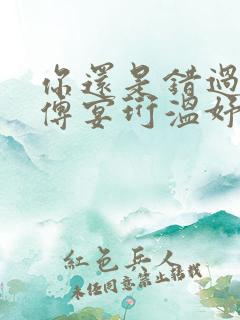 你還是錯過
傅宴珩溫妤
紅色兵人
未經同意禁止轉載